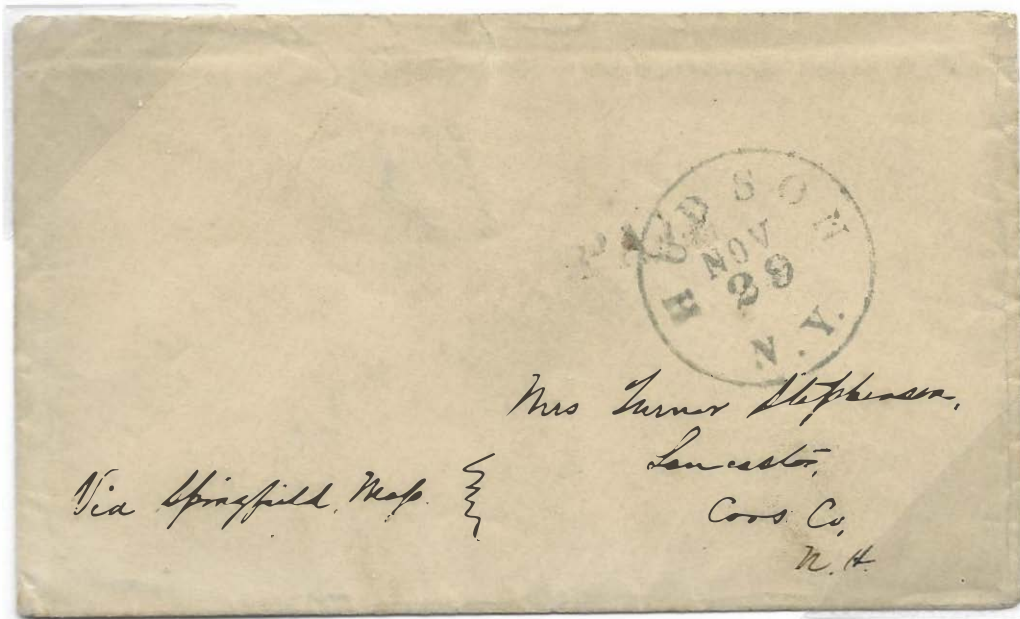 PAID
HUDSON
NOV
29
N.Y.
Mrs Turner Stephenson,
Lancaster,
Coos Co,
N.H.
Via Springfield, Mass.